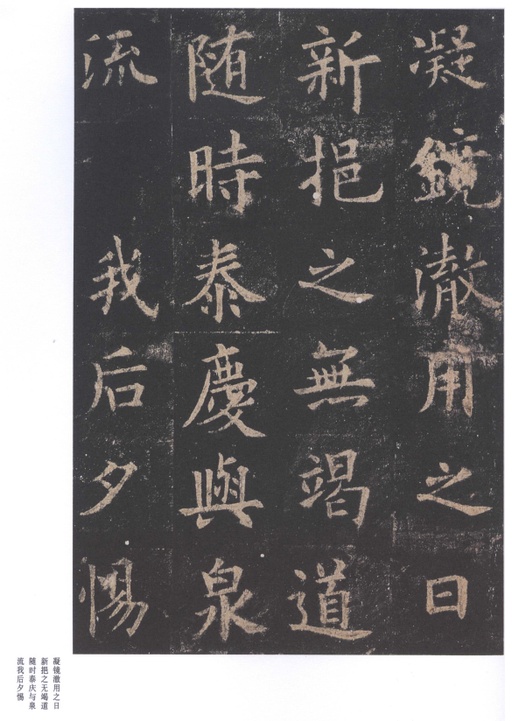 凝鏡澈用之日
新挹之無竭道
随時泰慶與泉
流 我后夕惕
凝镜澈用之日
新挹之无竭道
随时泰庆与泉
流我后夕惕